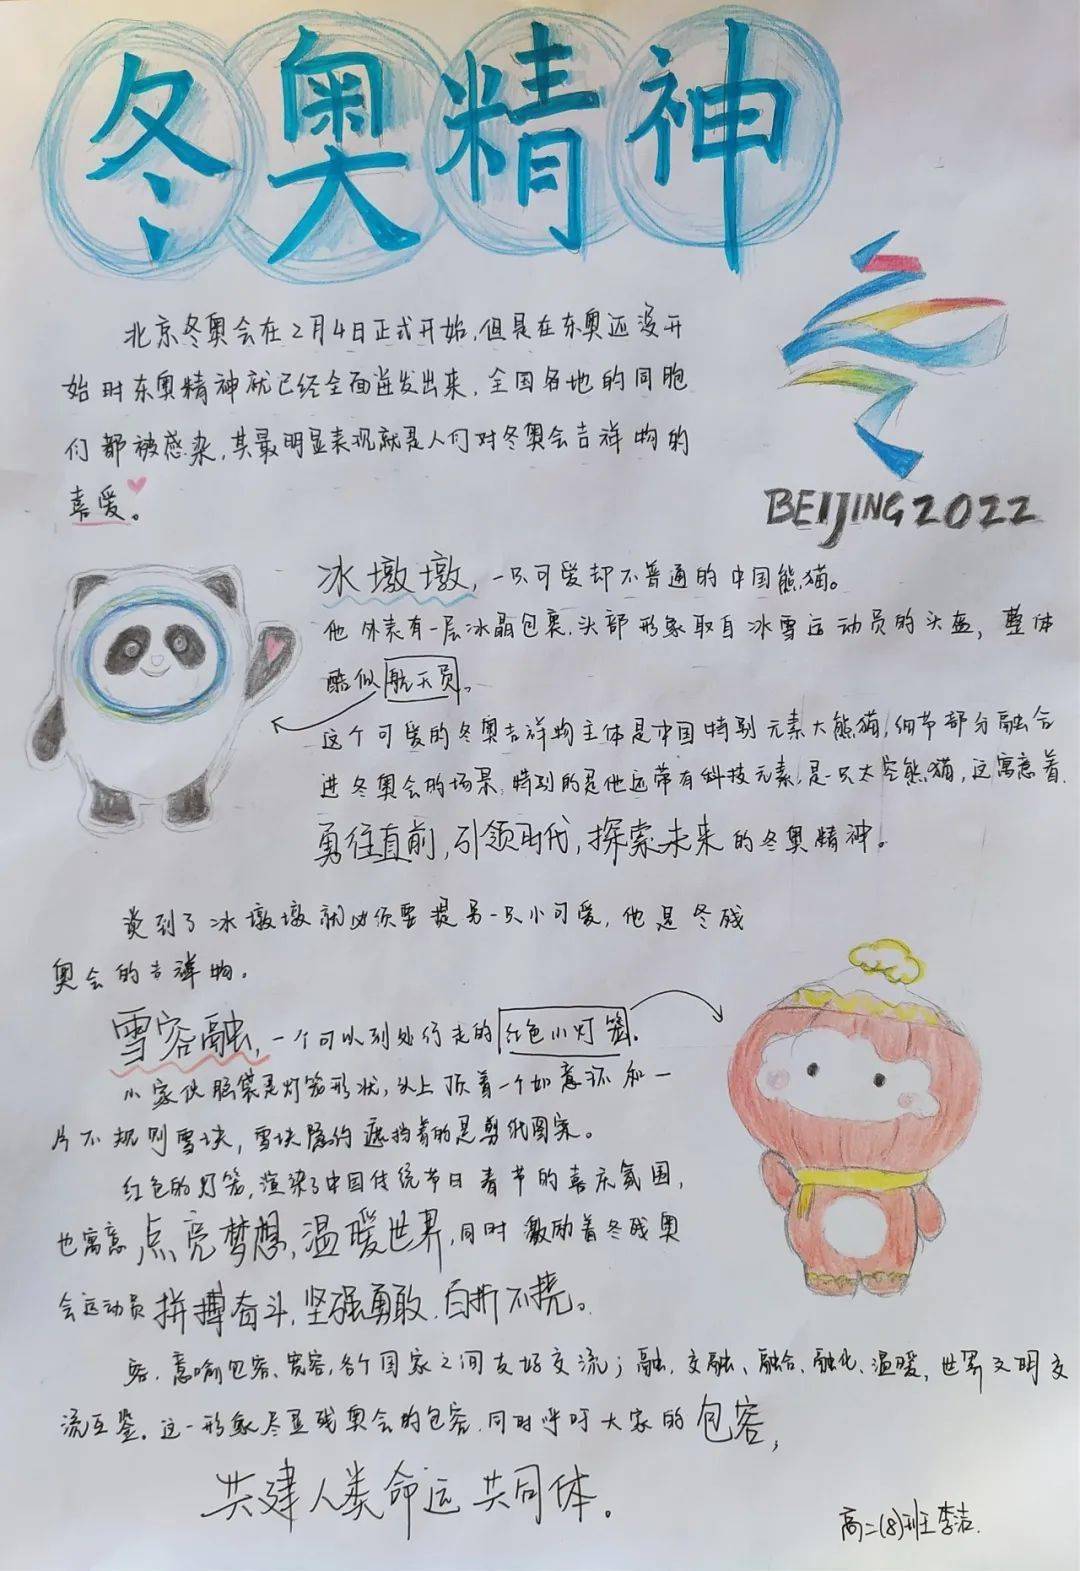 冬奥精神
北京冬奥会在2月4日正式开始,但是在东奥还没开
始时东奥精神就已经全面迸发出来,全国各地的同胞
们都被感染,其最明显表现就是人们对冬奥会吉祥物的
喜爱。
BEIJING 2022
冰墩墩,一只可爱却不普通的中国熊猫。
他外表有一层冰晶包裹,头部形象取自冰雪运动员的头盔,整体
酷似航天员。
这个可爱的冬奥吉祥物主体是中国特别元素大熊猫,细节部分融合
进冬奥会的场景,特别的是他还带有科技元素,是一只太空熊猫,这寓意着
勇往直前,引领时代,探索未来的冬奥精神。
谈到了冰墩墩就必须要提另一只小可爱,他是冬残
奥会的吉祥物。
雪容融,一个可以到处行走的红色小灯笼。
小家伙脑袋是灯笼形状,头上顶着一个如意环和一
片不规则雪块,雪块隐约遮挡着的是剪纸图案。
红色的灯笼,渲染了中国传统节日春节的喜庆氛围,
也寓意点亮梦想,温暖世界,同时激励着冬残奥
会运动员拼搏奋斗,坚强勇敢,百折不挠。
容,意喻包容、宽容,各个国家之间友好交流;融,交融、融合、融化、温暖,世界文明交
流互鉴。这一形象尽显残奥会的包容,同时呼吁大家的包容,
共建人类命运共同体。
高二(8)班李洁.